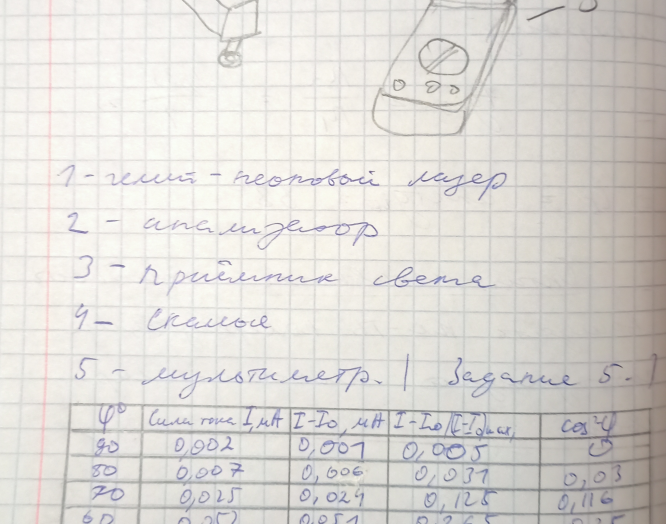 5
1 - гелий - неоновый лазер
2 - анализатор
3 - приёмник света
4 - скамья
5 - мультиметр. | Задание 5. |
φ° Сила тока I, мА I-I₀, мА I-I₀/(I-I₀)max, cos²φ
90 0,002 0,001 0,005 0
80 0,007 0,006 0,031 0,03
70 0,025 0,024 0,125 0,116
60 0,052 0,051 0,265